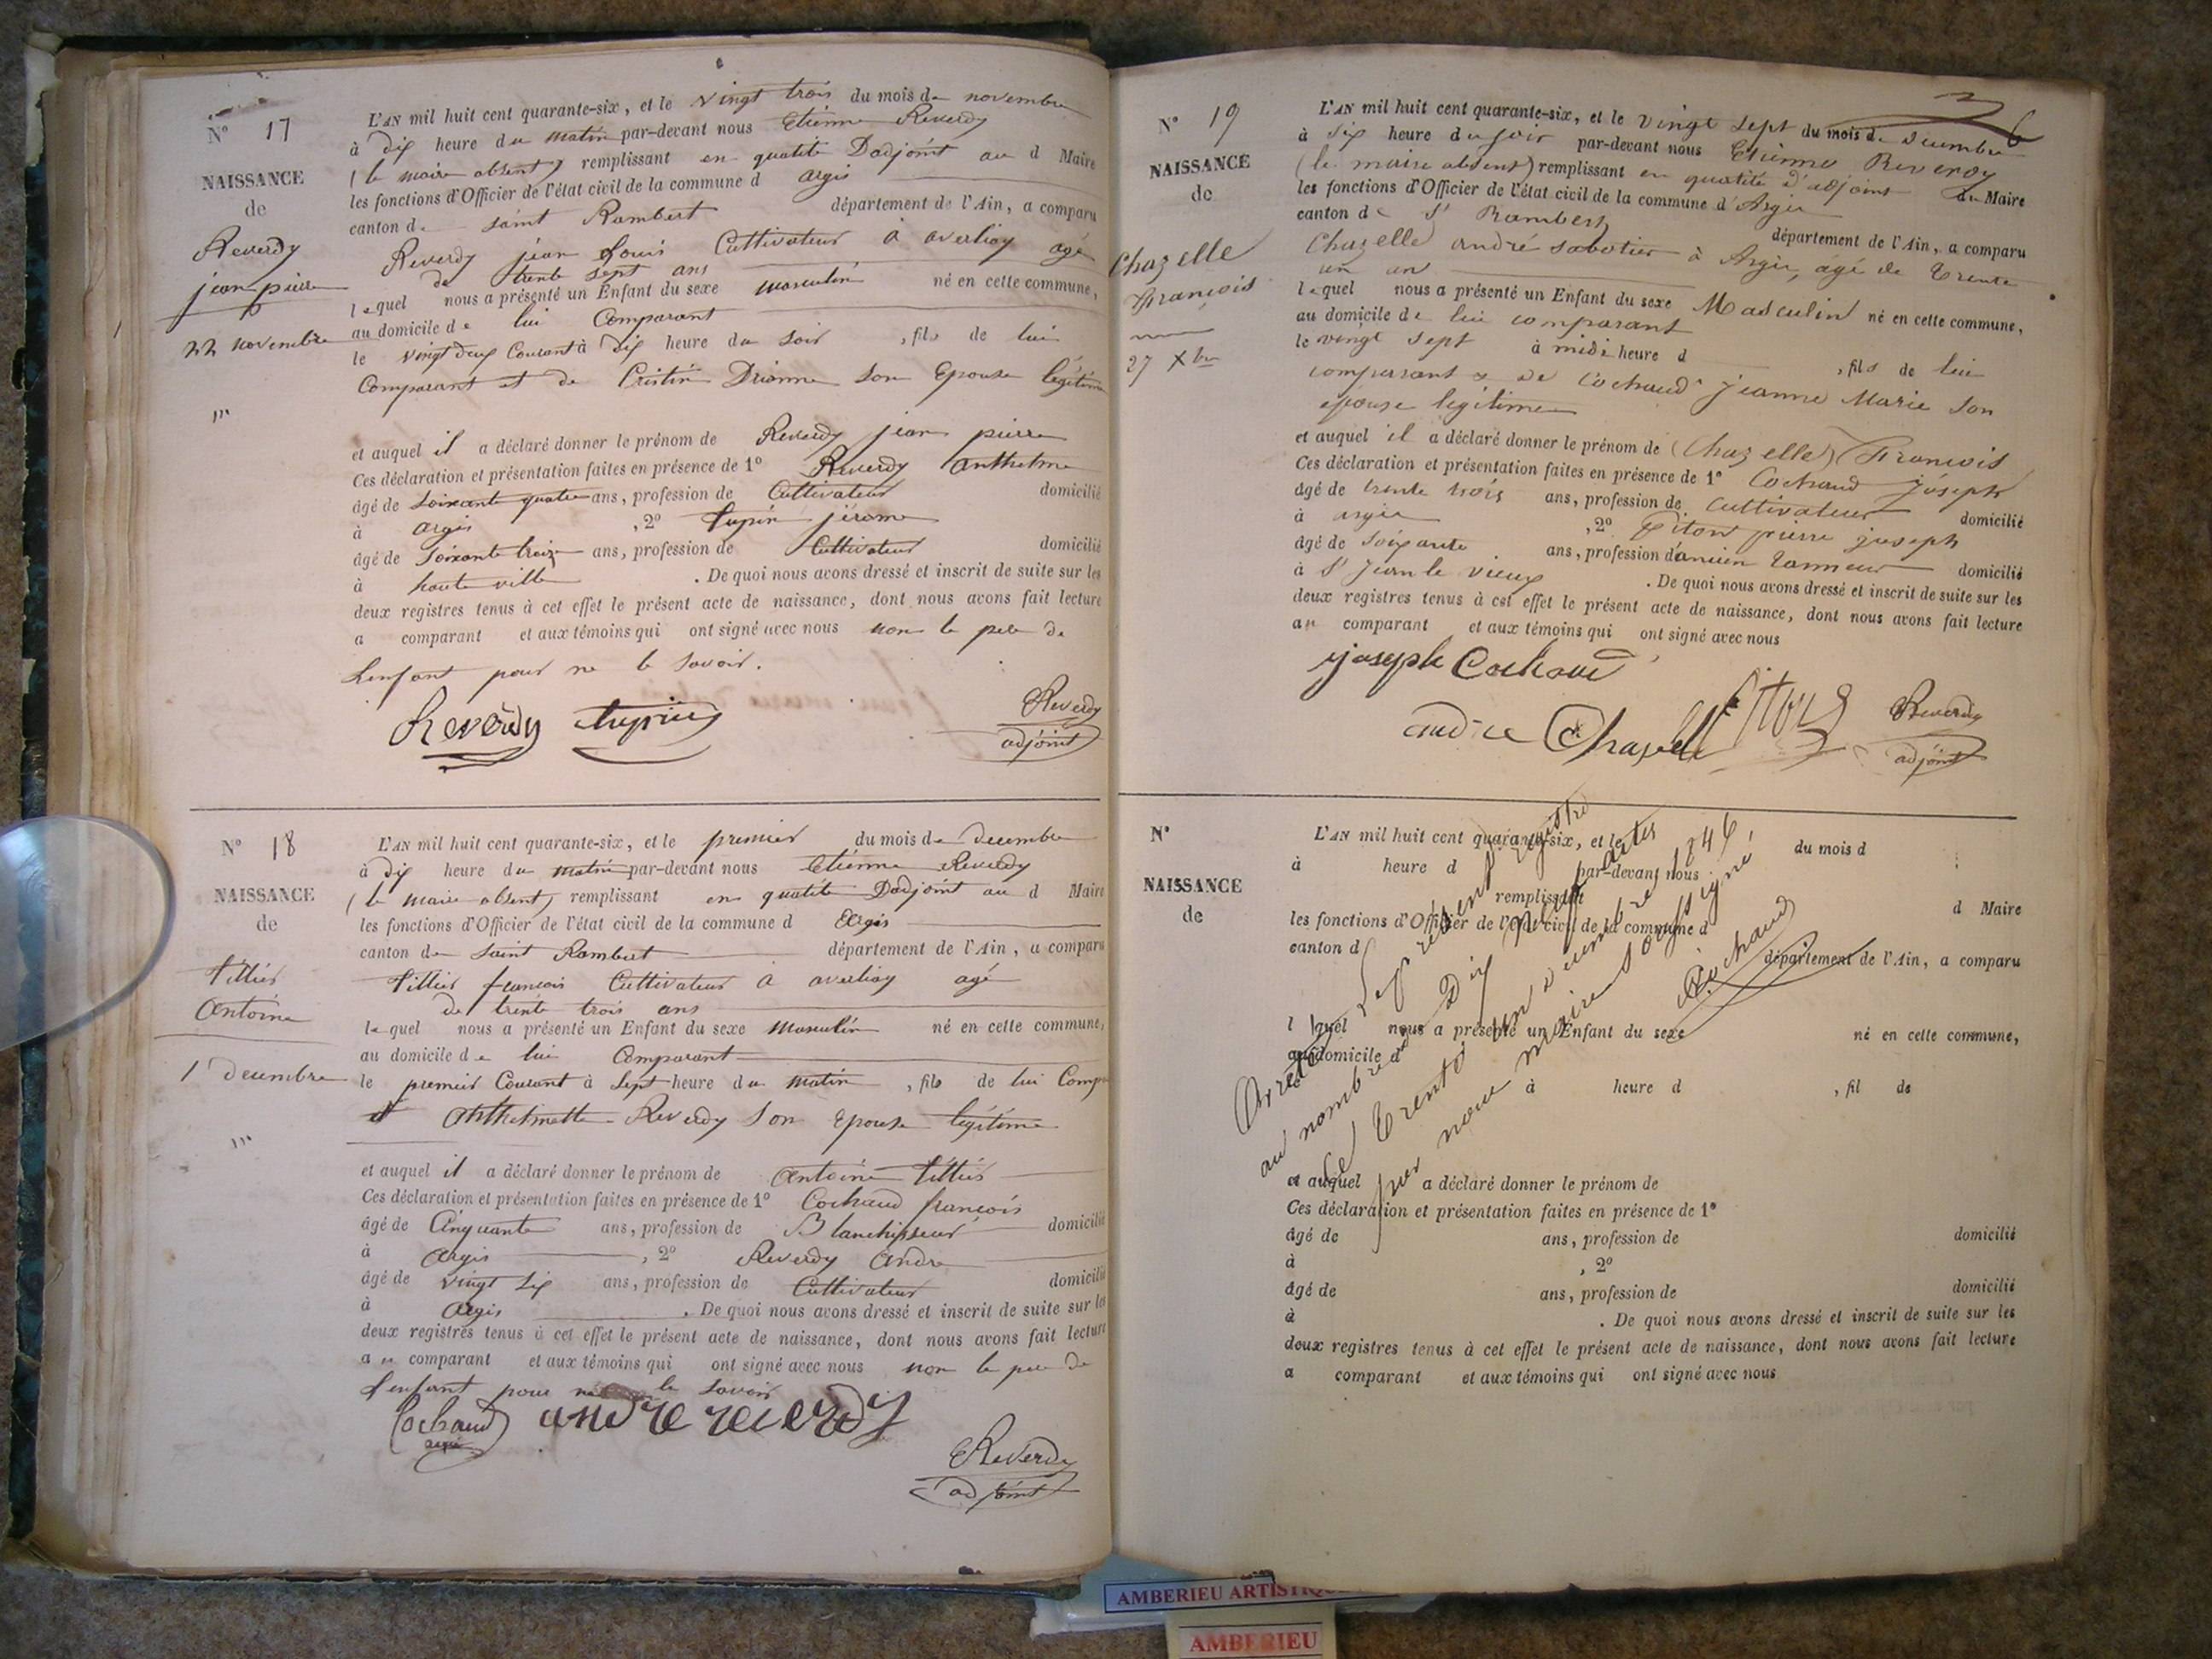 N° 17
NAISSANCE
de
Reverdy
jean pierre
22 novembre
L'AN mil huit cent quarante-six, et le vingt trois du mois de novembre
à dix heure du matin par-devant nous Etienne Reverdy
(le maire absent) remplissant en qualité Dadjoint au d Maire
les fonctions d'Officier de l'état civil de la commune d argis
canton de saint Rambert département de l'Ain, a comparu
Reverdy jean Louis Cultivateur à averliaz agé
de trente sept ans
lequel nous a présenté un Enfant du sexe masculin né en cette commune,
au domicile de lui Comparant
le vingt deux Courant à dix heure du soir , fils de lui
Comparant et de Cristin Drianne son Epouse légitime
et auquel il a déclaré donner le prénom de Reverdy jean pierre
Ces déclaration et présentation faites en présence de 1° Reverdy Anthelme
âgé de soixante quatre ans, profession de Cultivateur domicilié
à argis , 2° tupin jérome
âgé de soixante treize ans, profession de Cultivateur domicilié
à haute ville . De quoi nous avons dressé et inscrit de suite sur les
deux registres tenus à cet effet le présent acte de naissance, dont nous avons fait lecture
a comparant et aux témoins qui ont signé avec nous non le pere de
Lenfant pour ne le savoir.
Reverdy tupin Reverdy
adjoint
N° 18
NAISSANCE
de
tillier
Antoine
1 decembre
L'AN mil huit cent quarante-six, et le premier du mois de decembre
à dix heure du matin par-devant nous Etienne Reverdy
(le maire absent) remplissant en qualité Dadjoint au d Maire
les fonctions d'Officier de l'état civil de la commune d Argis
canton de saint Rambert département de l'Ain, a comparu
tillier francois Cultivateur à averliaz agé
de trente trois ans
lequel nous a présenté un Enfant du sexe masculin né en cette commune,
au domicile de lui Comparant
le premier Courant à sept heure du matin , fils de lui Compa
et Anthelmette Reverdy son Epouse légitime
et auquel il a déclaré donner le prénom de Antoine tillier
Ces déclaration et présentation faites en présence de 1° Cochaud françois
âgé de Cinquante ans, profession de Blanchisseur domicilié
à Argis , 2° Reverdy Andre
âgé de vingt six ans, profession de Cultivateur domicilié
à Argis . De quoi nous avons dressé et inscrit de suite sur les
deux registres tenus à cet effet le présent acte de naissance, dont nous avons fait lecture
au comparant et aux témoins qui ont signé avec nous non le pere de
Lenfant pour ne le savoir
Cochaud andre reverdy
Reverdy
adjoint
6
N° 19
NAISSANCE
de
Chazelle
François
27 Xbre
L'AN mil huit cent quarante-six, et le vingt sept du mois de decembre
à six heure du soir par-devant nous Etienne Reverdy
(le maire absent) remplissant en qualité d'adjoint du Maire
les fonctions d'Officier de l'état civil de la commune d'Argis
canton de St Rambert département de l'Ain, a comparu
Chazelle andré sabotier à Argis, âgé de trente
un an
lequel nous a présenté un Enfant du sexe Masculin né en cette commune,
au domicile de lui comparant
le vingt sept à midi heure d , fils de lui
comparant & de Cochaud jeanne Marie son
épouse legitime
et auquel il a déclaré donner le prénom de (Chazelle) François
Ces déclaration et présentation faites en présence de 1° Cochaud joseph
âgé de trente trois ans, profession de cultivateur domicilié
à argis , 2° Piton pierre joseph
âgé de soixante ans, profession d'ancien tanneur domicilié
à St jean le vieux . De quoi nous avons dressé et inscrit de suite sur les
deux registres tenus à cet effet le présent acte de naissance, dont nous avons fait lecture
au comparant et aux témoins qui ont signé avec nous
joseph Cochaud
andre Chazelle Piton Reverdy
adjoint
N°
NAISSANCE
de
L'AN mil huit cent quarante-six, et le du mois d
à heure d par-devant nous
remplissant d Maire
les fonctions d'Officier de l'état civil de la commune d
canton d département de l'Ain, a comparu
l quel nous a présenté un Enfant du sexe né en cette commune,
au domicile d
à heure d , fil de
et auquel a déclaré donner le prénom de
Ces déclaration et présentation faites en présence de 1°
âgé de ans, profession de domicilié
à , 2°
âgé de ans, profession de domicilié
à . De quoi nous avons dressé et inscrit de suite sur les
deux registres tenus à cet effet le présent acte de naissance, dont nous avons fait lecture
a comparant et aux témoins qui ont signé avec nous
Arrêté le présent registre
au nombre de Dix neuf actes
le trente un decembre 1846,
par nous maire soussigné
Cochaud
AMBERIEU ARTISTIQUE
AMBERIEU